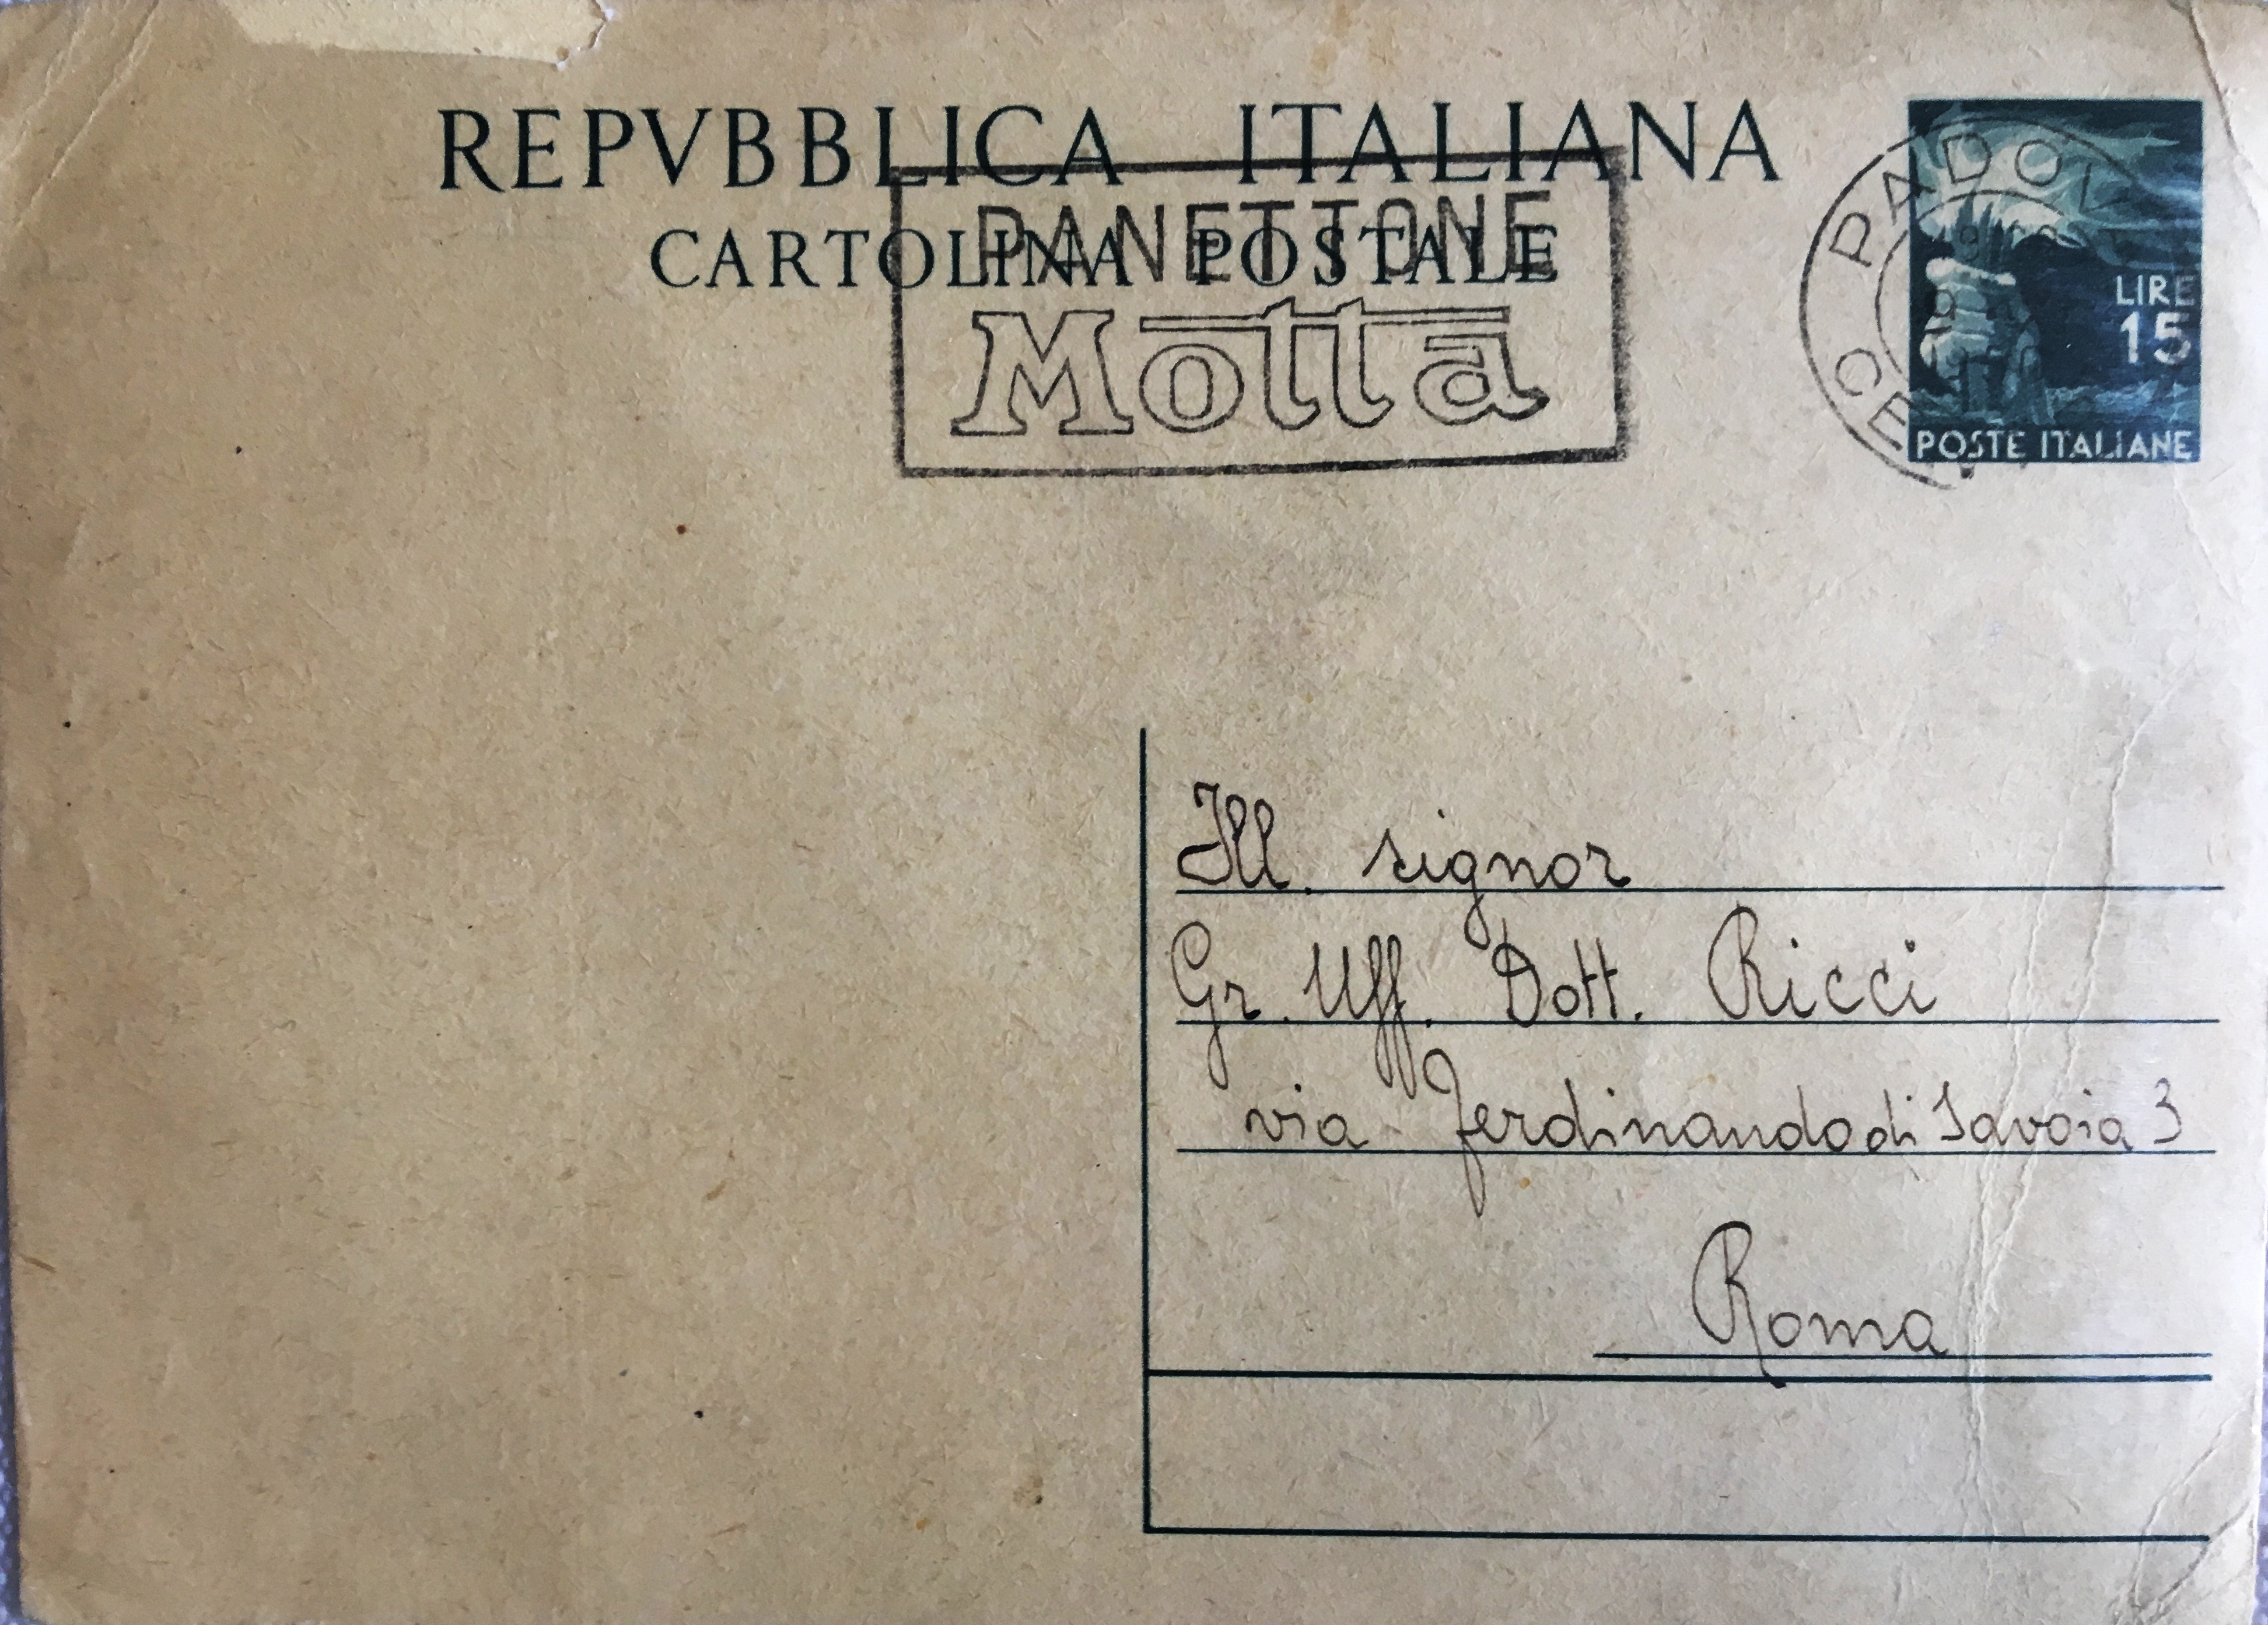 REPVBBLICA ITALIANA
CARTOLINA POSTALE
PANETTONE
Motta
PADOV
CE
LIRE
15
POSTE ITALIANE
Ill. signor
Gr. Uff. Dott. Ricci
via Ferdinando di Savoia 3
Roma